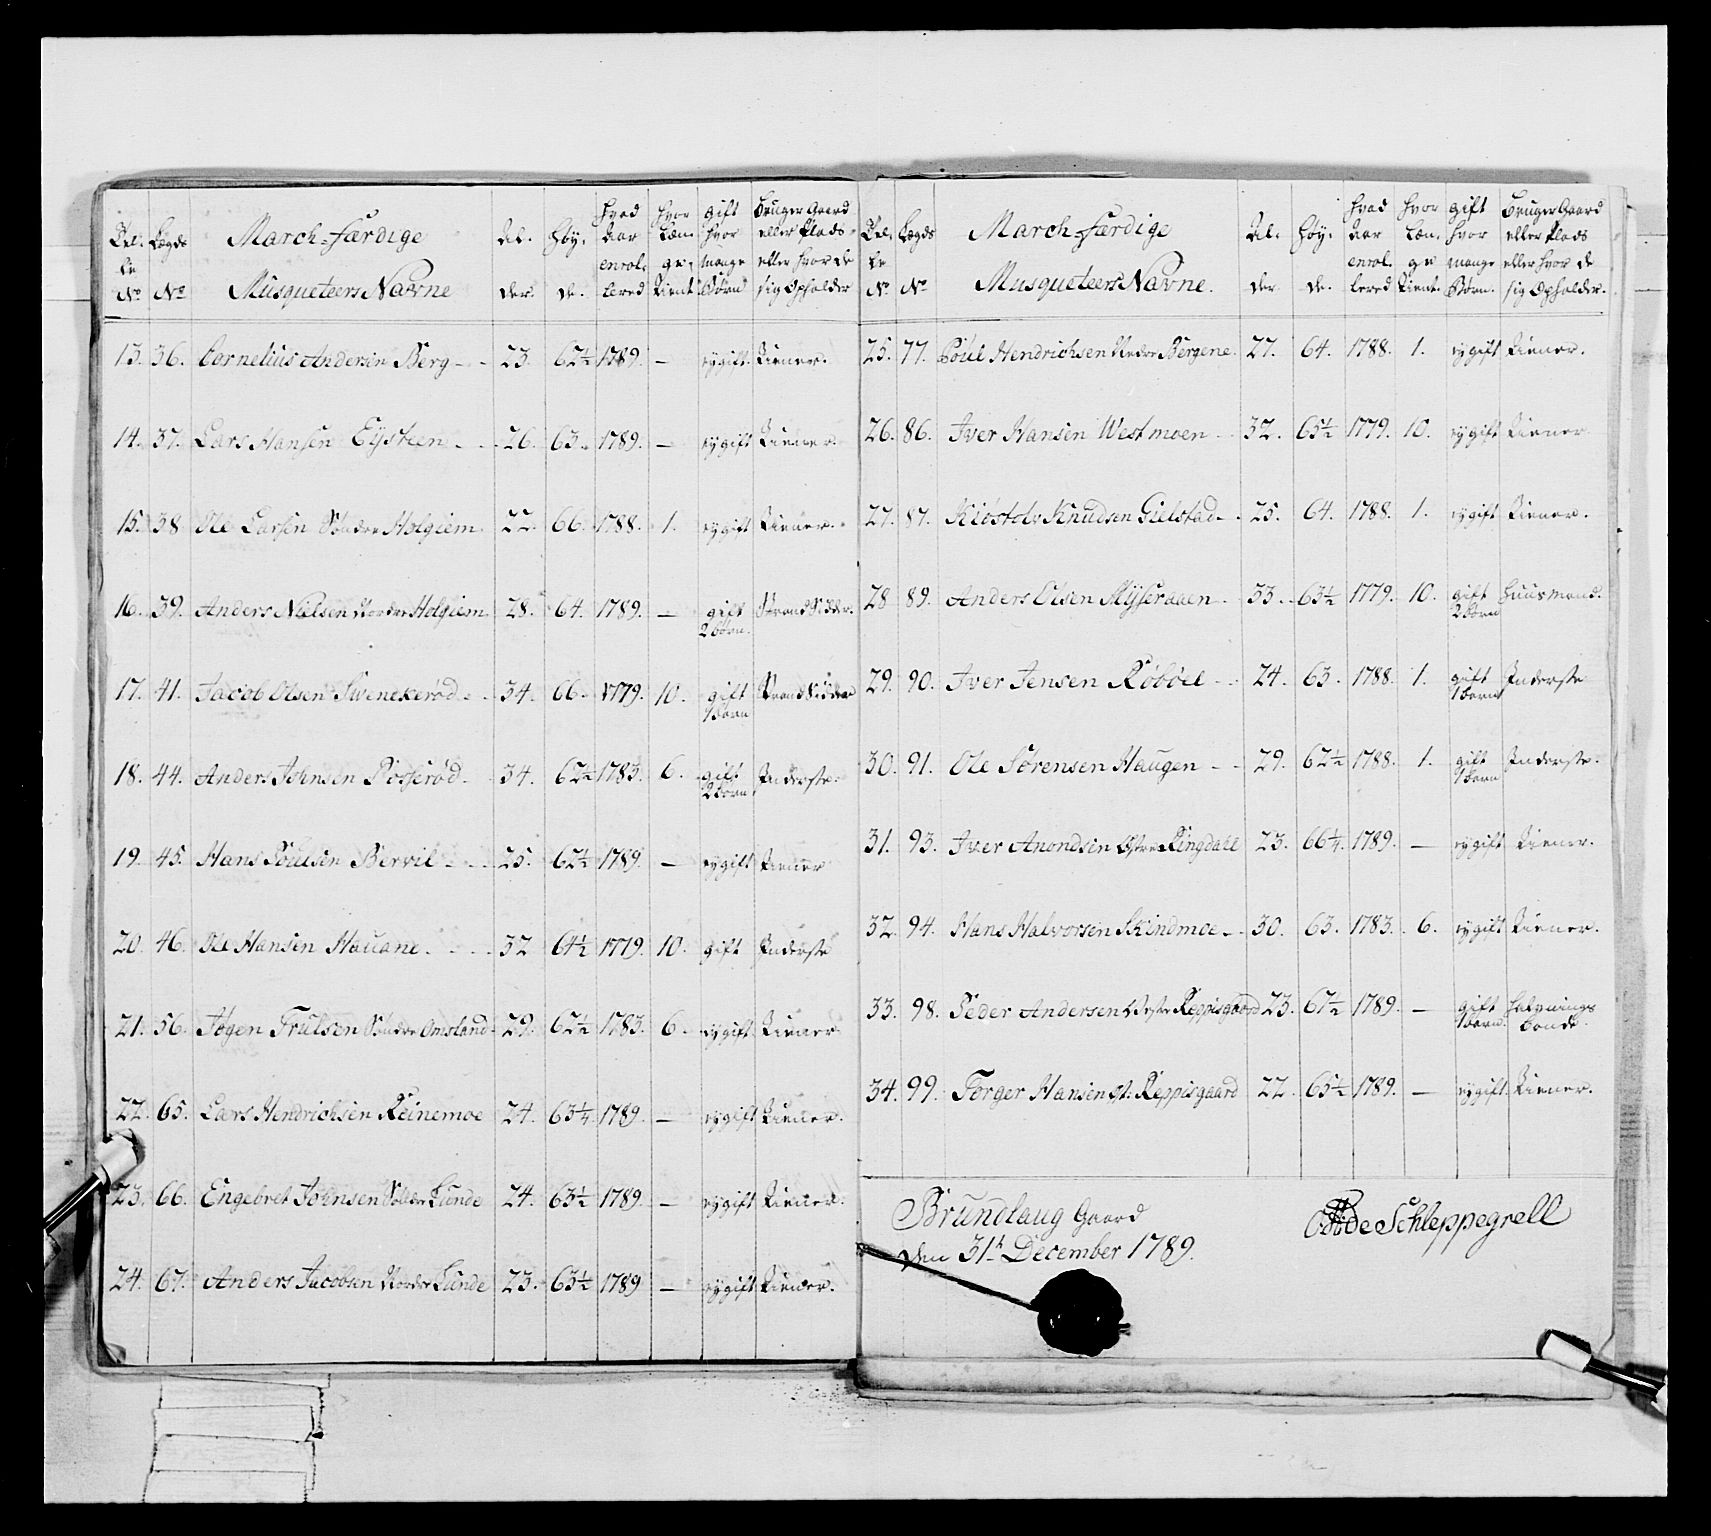 Rul:
le
No
Lægds
No
March-færdige
Musqueteers Navne
Al-
der.
Høy-
de.
hvad
Aar
enrol-
lered
hvor
læn-
ge
tient
gift
hvor
mange
Børn
Bruger Gaard
eller Plads
eller hvor de
sig Opholder
13. 36. Cornelius Andersen Berg - - 23. 62½ 1789. — eygift. Tiener.
14. 37. Lars Hansen Eysteen - - - 26. 63. 1789. — eygift Tiener.
15. 38 Ole Larsen Søndre Holgiem 22. 66. 1788. 1. eygift Tiener.
16. 39. Anders Nielsen Nordre Holgiem 28. 64. 1789. — gift Strandsidder.
2 børn.
17. 41. Jacob Olsen Svenekerød - - 34. 66. 1779. 10. gift Strandsidder
1 barn
18. 44. Anders Johnsen Rosserød - - 34. 62½ 1783. 6. gift Inderste.
2 børn
19. 45. Hans Poulsen Bervil - - - 25. 62½ 1789. — eygift Tiener
20. 46. Ole Hansen Hauane. - - - 32 64½ 1779. 10. gift Inderste
21. 56. Jøgen Trulsen Søndre Omsland - 29. 62½ 1783. 6. eygift Tiener
22. 65. Lars Hendrichsen Reinemoe 24. 63¼ 1789. — eygift Tiener.
23. 66. Engebret Johnsen Søndre Lunde 24. 63½ 1789. — eygift Tiener.
24. 67. Anders Jacobsen Nordre Lunde 23. 63½ 1789 — eygift Tiener.
Rul.
le
No
Lægds
No
March-færdige
Musqueteers Navne.
Al-
der
Høy-
de.
hvad
Aar
enrol-
lered
hvor
læn-
ge
tient.
gift
hvor
mange
Børn.
Bruger Gaard
eller Plads
eller hvor de
sig Opholder.
25. 77. Poul Hendrichsen Nedre Bergene. 27. 64. 1788. 1. eygift Tiener.
26. 86. Iver Hansen Westmoen - - 32. 63½ 1779. 10. eygift Tiener
27. 87. Kiøstolv Knudsen Gielstad - - 25. 64. 1788. 1. eygift Tiener.
28 89. Anders Olsen Myseraaen - 33. 63½ 1779. 10. gift Huusmand.
2 børn
29. 90. Iver Jensen Røbøel - - 24. 63. 1788. 1. gift Inderste
1 barn
30. 91. Ole Sørensen Haugen - - 29. 62½ 1788. 1. gift Inderste.
1 barn
31. 93. Iver Anondsen Østre Ringdall 23. 66¼. 1789. — eygift Tiener.
32. 94. Hans Halvorsen Skindmoe - - 30. 63. 1783. 6. eygift Tiener.
33. 98. Peder Andersen Westre Reppisgaard 23. 67½ 1789. — gift halvnings
1 barn. bonde.
34. 99. Torger Hansen st: Reppisgaard 22. 65½ 1789. — eygift Tiener.
Brundlaug Gaard
den 31t December 1789.
de Schleppegrell